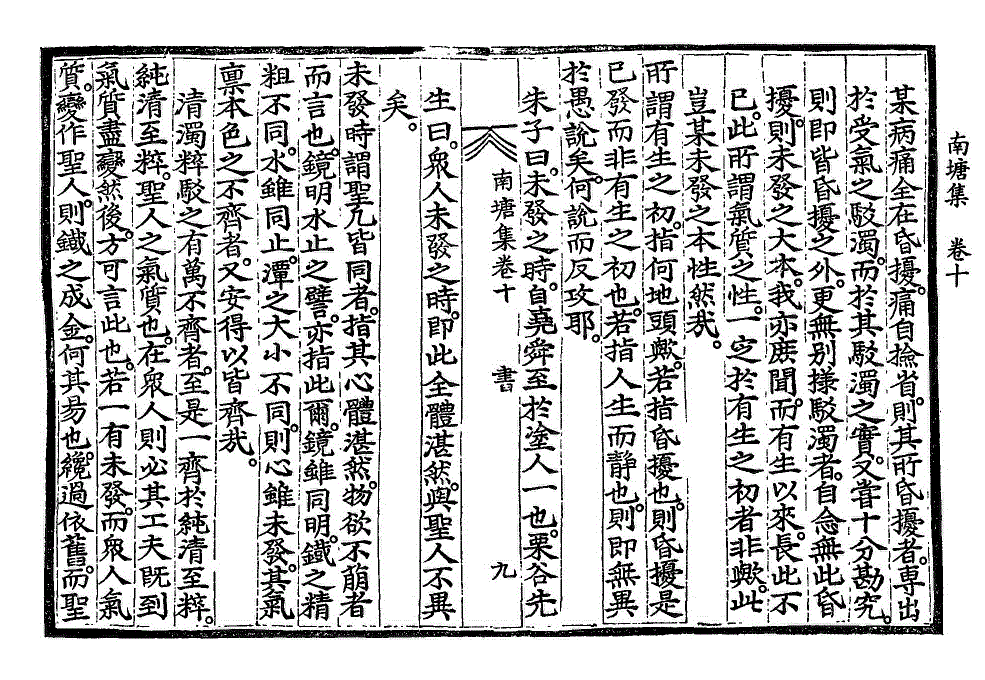 南塘集 卷十
某病痛全在昏擾。痛自撿省。則其所昏擾者。專出
於受氣之駁濁。而於其駁濁之實。又嘗十分勘究。
則即皆昏擾之外。更無別㨾駁濁者。自念無此昏
擾。則未發之大本。我亦庶聞。而有生以來。長此不
已。此所謂氣質之性。一定於有生之初者非歟。此
豈某未發之本性然哉。
所謂有生之初。指何地頭歟。若指昏擾也。則昏擾是
已發而非有生之初也。若指人生而靜也。則即無異
於愚說矣。何說而反攻耶。
朱子曰。未發之時。自堯舜至於塗人一也。栗谷先
南塘集卷十 書 九
生曰。衆人未發之時。即此全體湛然。與聖人不異
矣。
未發時謂聖凡皆同者。指其心體湛然。物欲不萠者
而言也。鏡明水止之譬。亦指此爾。鏡雖同明。鐵之精
粗不同。水雖同止。潭之大小不同。則心雖未發。其氣
禀本色之不齊者。又安得以皆齊哉。
清濁粹駁之有萬不齊者。至是一齊於純清至粹。
純清至粹。聖人之氣質也。在衆人則必其工夫旣到
氣質盡變然後。方可言此也。若一有未發。而衆人氣
質。變作聖人。則鐵之成金。何其易也。纔過依舊。而聖